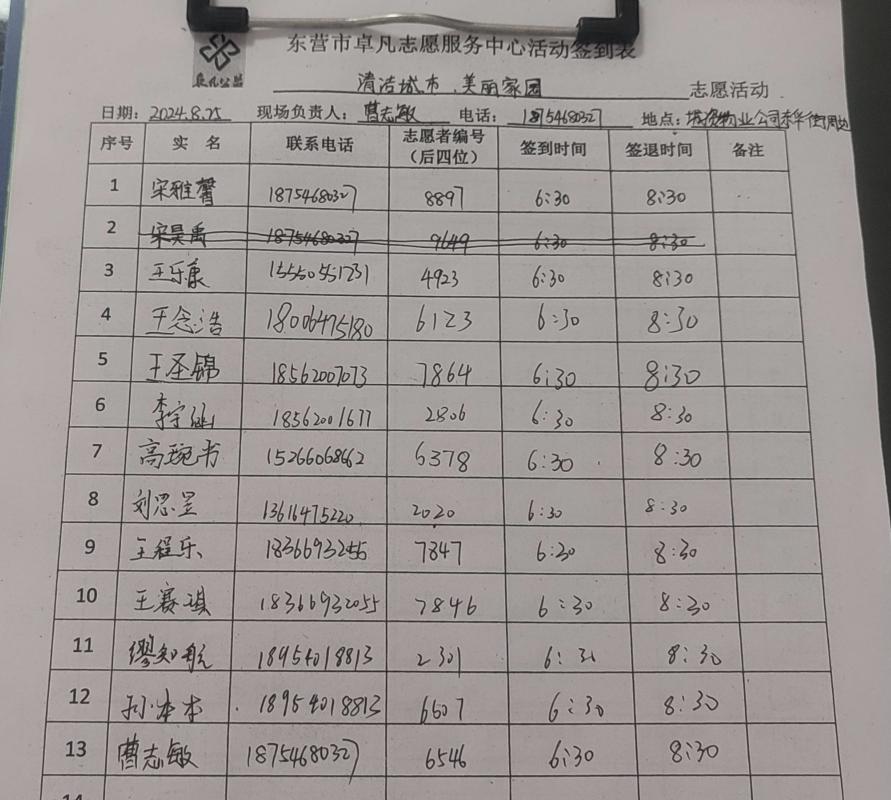 东营市卓凡志愿服务中心活动签到表
卓凡公益
清洁城市、美丽家园 志愿活动
日期：2024.8.25 现场负责人：曹志敏 电话：18754680327 地点：物业公司李华街周边
序号 实 名 联系电话 志愿者编号（后四位） 签到时间 签退时间 备注
1 宋雅馨 18754680327 8897 6:30 8:30
2 宋昊禹 18754680327 9649 6:30 8:30
3 王乐康 15550551231 4923 6:30 8:30
4 王念浩 18006475180 6123 6:30 8:30
5 王圣锦 18562007073 7864 6:30 8:30
6 李宇涵 18562001677 2806 6:30 8:30
7 高琬书 15266068662 6378 6:30 8:30
8 刘思昱 13616475220 2020 6:30 8:30
9 王程乐 18366932055 7847 6:30 8:30
10 王赛琪 18366932055 7846 6:30 8:30
11 缪知航 18954018813 2301 6:30 8:30
12 孙本木 18954018813 6607 6:30 8:30
13 曹志敏 18754680327 6546 6:30 8:30